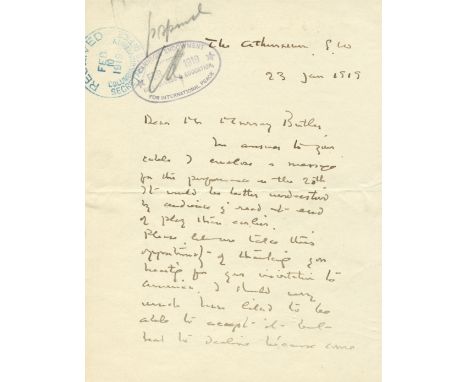 RECEIVED
FEB 10 1919
SECRETARY
CARNEGIE ENDOWMENT
1919
EDUCATION
FOR INTERNATIONAL PEACE
The Athenaeum, S.W
23 Jan 1919
Dear Mr Murray Butler,
In answer to your
cable I enclose a message
for the performance on the 28th.
It would be better understood
by audience if read at end
of play than earlier.
Please let me take this
opportunity of thanking you
heartily for your invitation to
America. I should very
much have liked to be
able to accept it but
had to decline because some